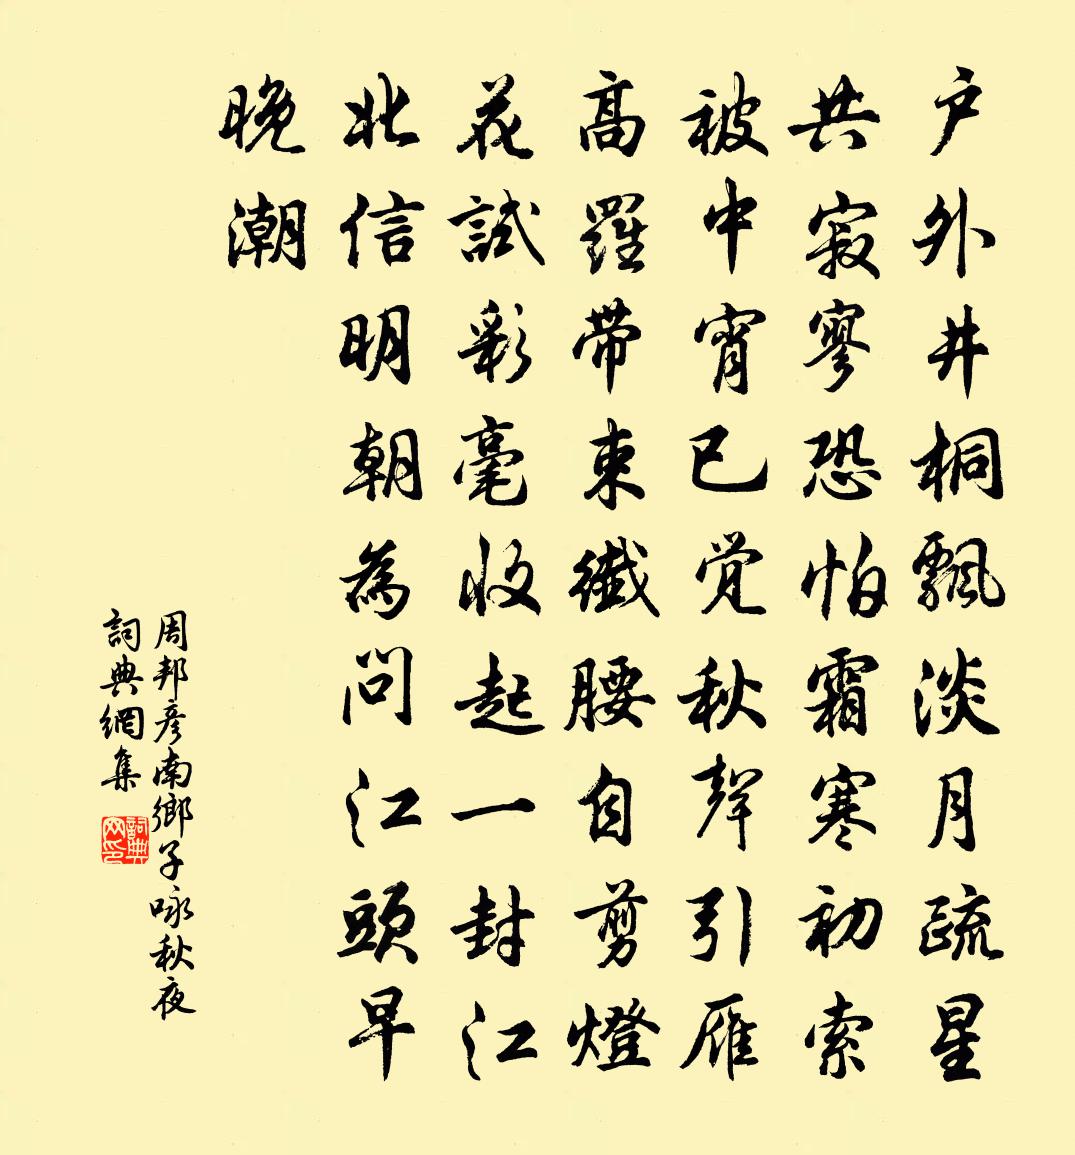 户外井桐飄淡月疏星
共寂寥恐怕霜寒初索
被中宵已覚秋聲引雁
高羅帶束纖腰自剪燈
花試彩毫收起一封江
北信明朝為問江頭早
晚潮
周邦彥南鄉子咏秋夜
詞典網集
詞典网印